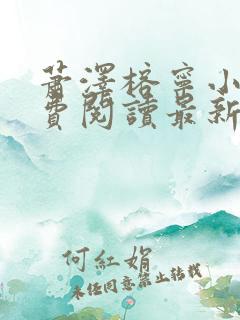 蕭澤格寧小
費閱讀最新
何紅娟
未經同意禁止轉載